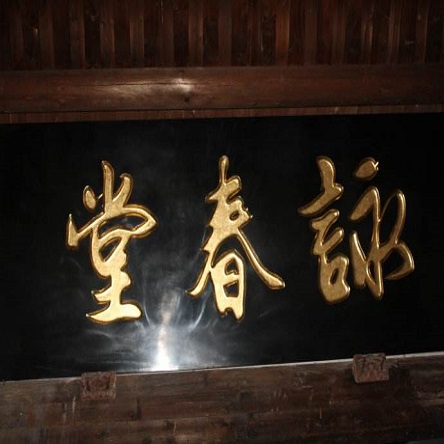 詠春堂